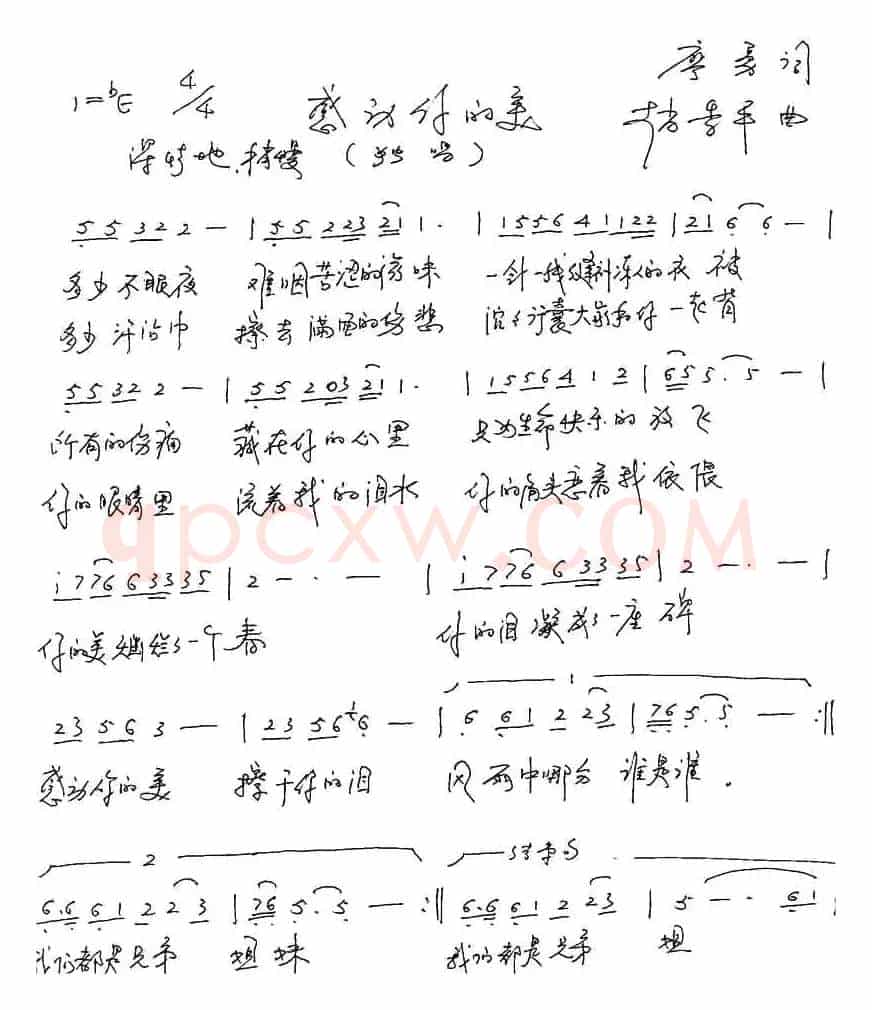 1=♭E 4/4 感动你的美 廖勇词
深情地.稍慢 (独唱) 李平曲
5 5 3 2 2 — | 5 5 2 2 3 2 1 1 · | 1 5 5 6 4 1 1 2 2 | 2 1 6 6 — |
多少不眠夜 难咽苦涩的滋味 一针一线缝制冻人的衣被
多少汗沾巾 擦去满面的伤悲 沉沉行囊大家和你一起背
5 5 3 2 2 — | 5 5 2 0 3 2 1 1 · | 1 5 5 6 4 1 2 | 6 5 5 . 5 — |
所有的伤痛 藏在你的心里 只为生命快乐的放飞
你的眼睛里 流着我的泪水 你的肩头意着我依偎
i 7 7 6 6 3 3 3 5 | 2 — · — | i 7 7 6 6 3 3 3 5 | 2 — · — |
你的美灿烂了一个春 你的泪凝成了一座碑
1
2 3 5 6 3 — | 2 3 5 6 1 6 — | 6 6 1 2 2 3 | 7 6 5 . 5 — :||
感动你的美 擦干你的泪 风雨中哪分谁是谁.
2 结束句
6 . 6 6 1 2 2 3 | 7 6 5 . 5 — :|| 6 . 6 6 1 2 2 3 | 5 — · 6 1 |
我们都是兄弟姐妹 我们都是兄弟姐
qpcxw.com